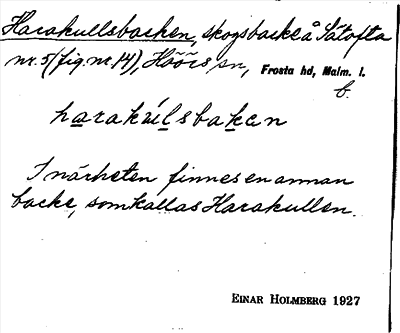 Harakullsbacken, skogsbacke å Sätofta
nr. 5 (fig. nr. 14), Höörs sn, Frosta hd, Malm. l.
b.
harakúlsbakɐn
I närheten finnes en annan
backe, som kallas Harakullen.
EINAR HOLMBERG 1927